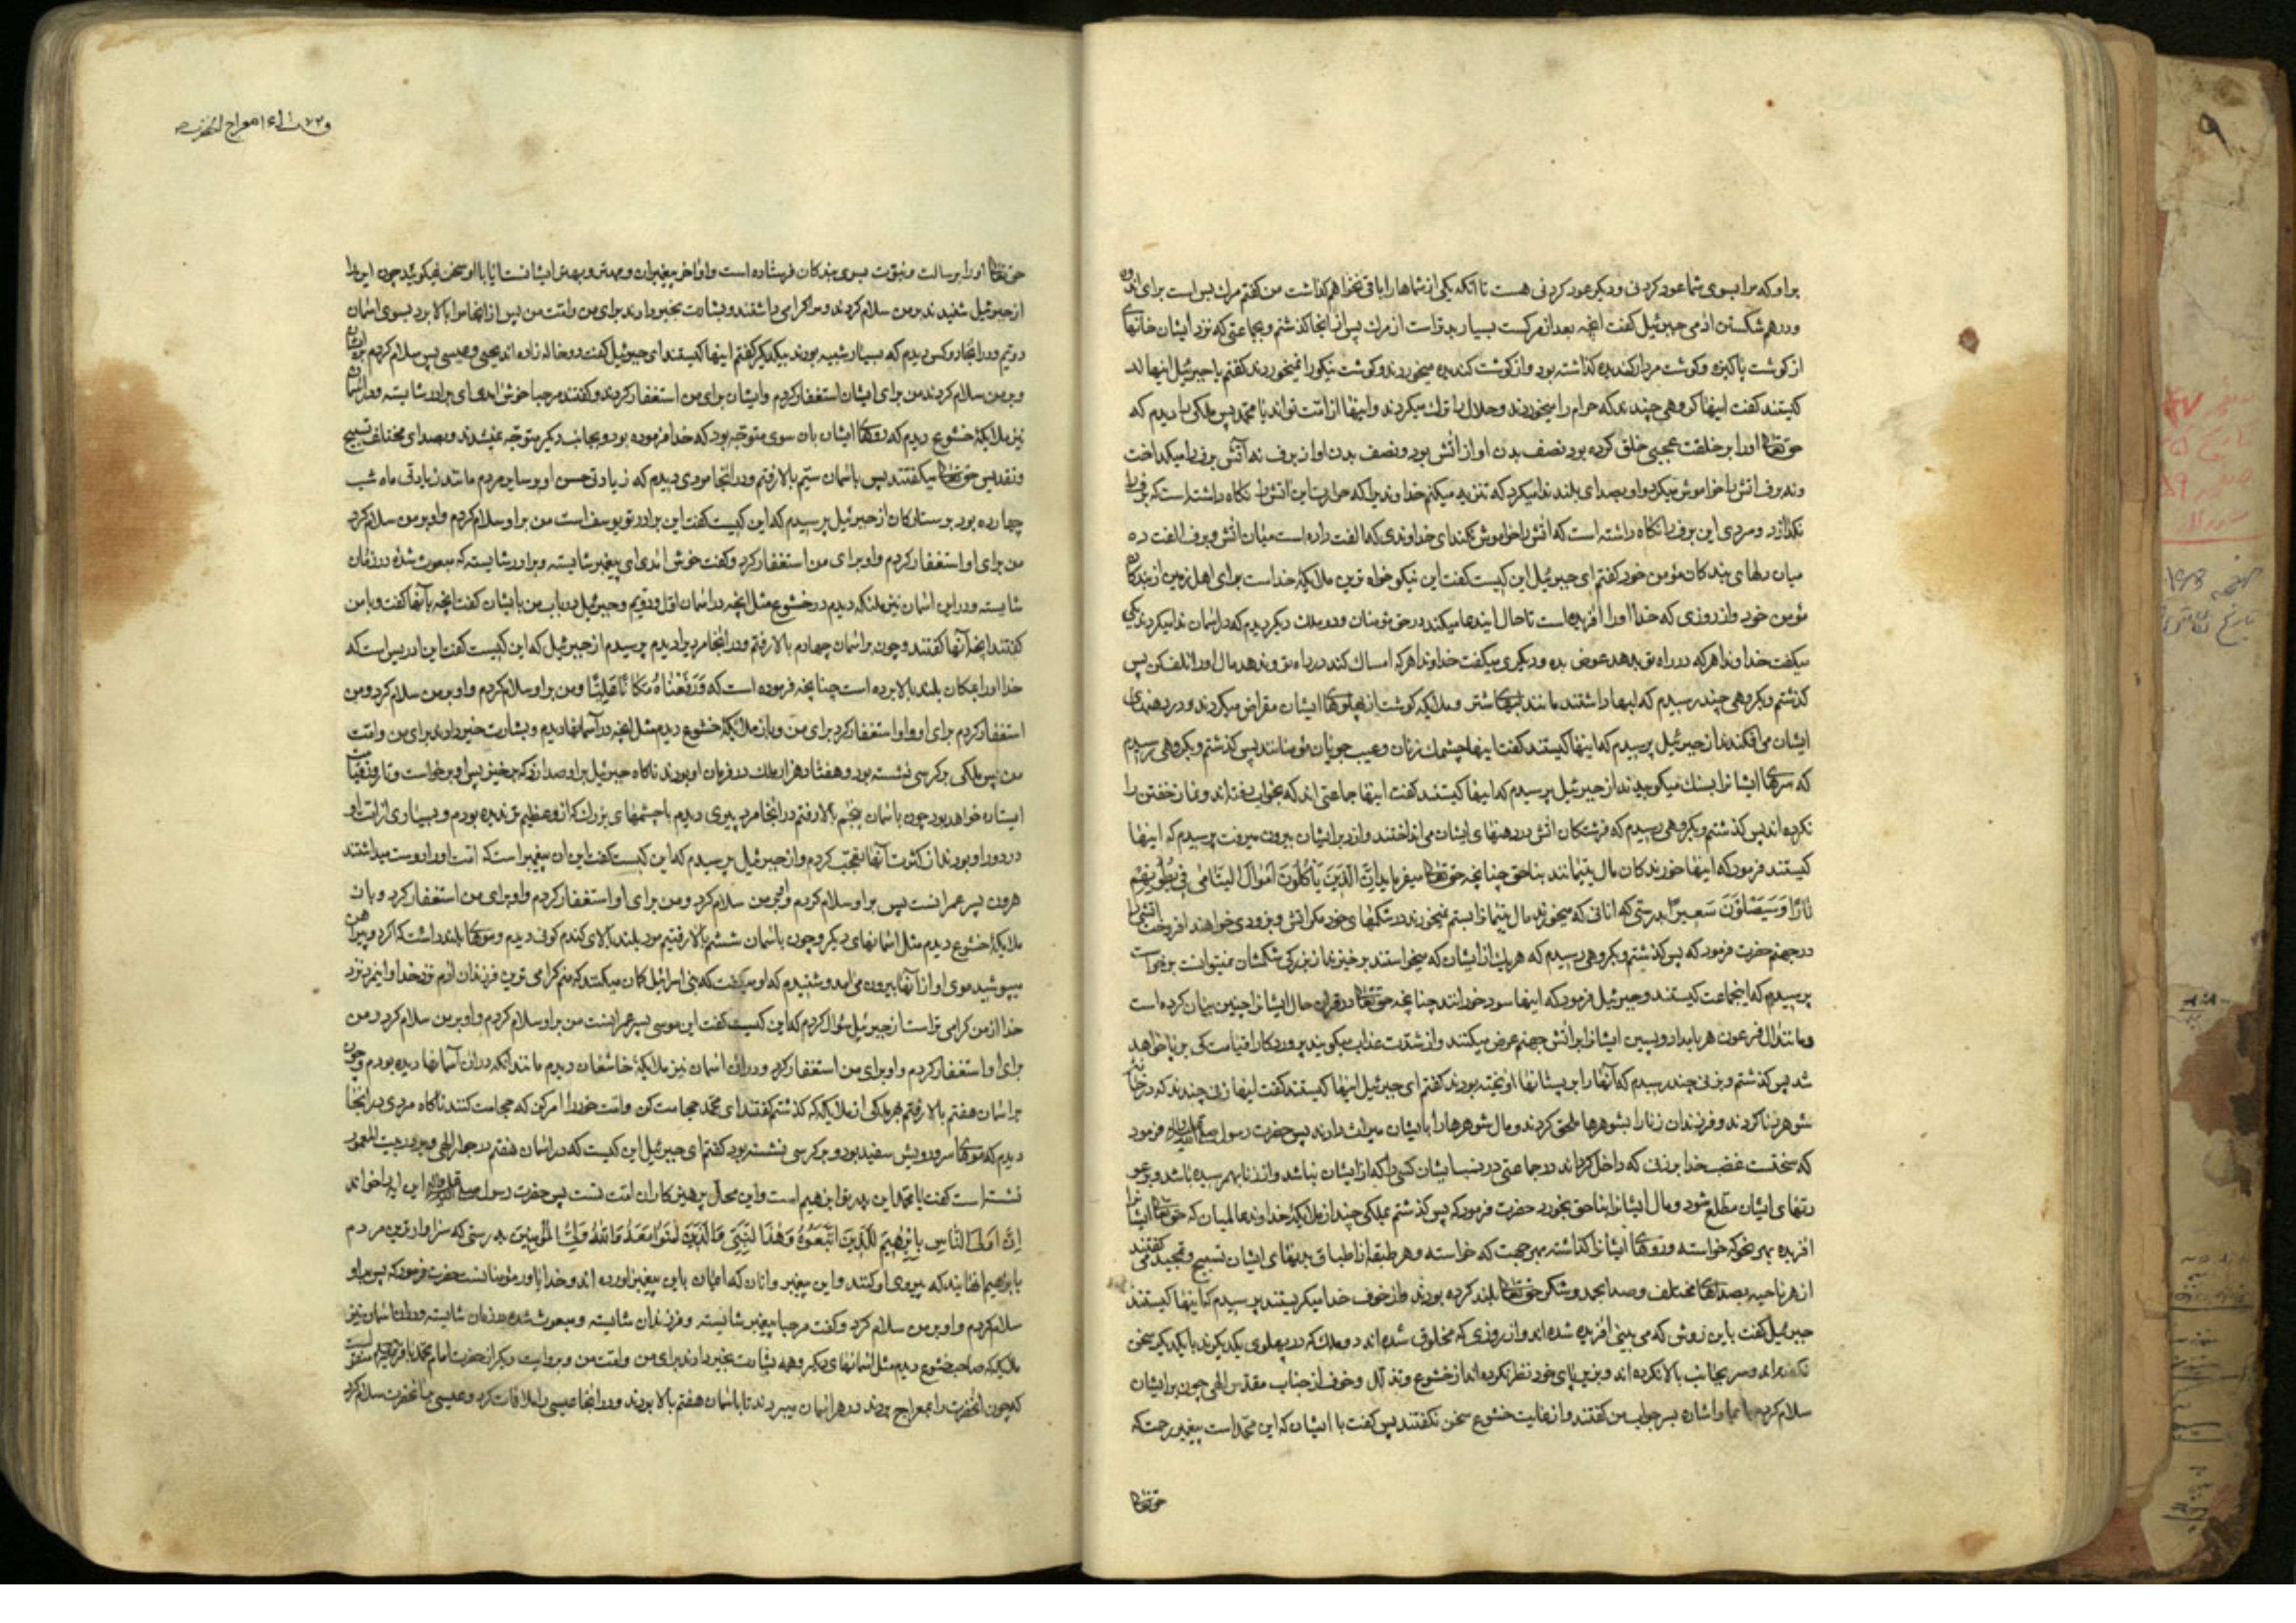 براو که مرا بسوی شما عود کردنی و دیگر عود کردنی هست تا آنکه یکی از شماها را باقی نخواهم گذاشت من گفتم مرك بس است برای اندوه
و درهم شکستن ادمی جبرئیل گفت آنچه بعد از مرکست بسیار بدتر است از مرك پس از انجا گذشتم و بجماعتی که نزد ایشان خوانهای
از کوشت پاکیزه و کوشت مردار کندیده گذاشته بود و از کوشت کندیده میخوردند و کوشت نیکو را نمیخوردند گفتم یا جبرئیل اینها
کیستند گفت اینها کروهی چندند که حرام را میخوردند و حلال را ترك میکردند و اینها از امت تواند یا محمد پس ملکی را دیدم که
حق تعالی او را بر خلقت عجیبی خلق کرده بود نصف بدن او از اتش بود و نصف بدن او از برف نه آتش برف را میکداخت
و نه برف اتش را خاموش میکرد و او بصدای بلند ندا میکرد که تنزیه میکنم خداوندیرا که حرارت این اتش را نکاه داشته است که برف را
نکدازد و سردی این برف را نکاه داشته است که اتش را خاموش نکند ای خداوندی که الفت داده است میان اتش و برف الفت ده
میان دلهای بندکان مؤمن خود گفتم ای جبرئیل این کیست گفت این نیکو خواه ترین ملایکهٔ خداست برای اهل زمین از بندکان
مؤمن خود و از روزی که خدا او را افریده است تا حال این دعا میکند در حق مؤمنان و دو ملك دیگر دیدم که در اسمان ندا میکردند یکی
میکفت خداوندا هر که در راه تو بدهد عوض بده و دیکری میکفت خداوندا هر که امساك کند در راه تو و ندهد مال او را تلف کن پس
گذشتم و بکروهی چند رسیدم که لبها داشتند مانند لبهای شتر و ملایکه کوشت از پهلوهای ایشان مقراض میکردند و در دهنهای
ایشان می افکندند از جبرئیل پرسیدم که اینها کیستند گفت اینها چشمك زنان و عیب جویان مؤمنانند پس گذشتم و بکروهی رسیدم
که سرهای ایشانرا بسنك میکوبیدند از جبرئیل پرسیدم که اینها کیستند گفت اینها جماعتی اند که بخواب رفته اند و نماز خفتن را
نکرده اند پس گذشتم و بکروهی رسیدم که فرشتکان اتش در دهنهای ایشان می انداختند و از دبر ایشان بیرون میرفت پرسیدم که اینها
کیستند فرمود که اینها خورندکان مال یتیمانند بناحق چنانچه حق تعالی میفرماید اِنَّ الَّذینَ یَاْکُلُونَ اَمْوالَ الیَتامی فی بُطُونِهِمْ
نارًا وَسَیَصْلَوْنَ سَعیرًا بدرستی که انانی که میخورند مال یتیمانرا بستم نمیخورند در شکمهای خود مکر اتش و بزودی خواهند افروخت اتشی را
در جهنم حضرت فرمود که پس گذشتم و بکروهی رسیدم که هر یك از ایشان که میخواستند برخیزند از بزرکی شکمشان نمیتوانست برخواست
پرسیدم که اینجماعت کیستند و جبرئیل فرمود که اینها سود خورانند چنانچه حق تعالی در قران حال ایشانرا چنین بیان کرده است
و مانند ال فرعون هر بامداد و پسین ایشانرا بر اتش جهنم عرض میکنند و از شدت عذاب میکویند پروردکارا قیامت کی برپا خواهد
شد پس گذشتم و بزنی چند رسیدم که آنها را به پستانها اویخته بودند گفتم ای جبرئیل اینها کیستند گفت اینها زنی چندند که در خانهٔ
شوهر زنا کردند و فرزندان زنا را بشوهرها ملحق کردند و مال شوهرها را بایشان میراث دادند پس حضرت رسول فرمود
که سختست غضب خدا بر زنی که داخل کرداند در جماعتی در نسب ایشان کسی را که از ایشان نباشد و از زنا بهم رسیده باشد و بر
ایشان مطلع شود و مال ایشانرا بناحق بخورد حضرت فرمود که پس گذشتم بملکی چند از ملایکهٔ خداوند عالمیان که حق تعالی ایشانرا
افریده بهر نحو که خواسته و روهای ایشانرا گذاشته بهر جهت که خواسته و هر طبقه از اطباق بدنهای ایشان تسبیح و تمجید می گفتند
از هر ناحیه بصداهای مختلف و صدا بحمد و شکر حق تعالی بلند کرده بودند و از خوف خدا میکریستند پرسیدم که اینها کیستند
جبرئیل گفت باین روش که می بینی افریده شده اند و از روزی که مخلوق شده اند دو ملك که در پهلوی یکدیگرند با یکدیگر سخن
نگفته اند و سر بجانب بالا نکرده اند و بزیر پای خود نظر نکرده اند از خشوع و تذلل و خوف از جناب مقدس الهی چون بر ایشان
سلام کردم بایما و اشاره بسر جواب من گفتند و از غایت خشوع سخن نگفتند پس گفت با ایشان که این محمد است پیغمبر رحمت که
حق تعالی
حق تعالی او را برسالت و نبوت بسوی بندکان فرستاده است و او اخر پیغمبران و مهتر و بهتر ایشانست ایا با او سخن نمیکوئید چون این را
از جبرئیل شنیدند بر من سلام کردند و مرا کرامی داشتند و بشارت بخیر دادند برای من و امت من پس از انجا مرا بالا برد بسوی اسمان
دویم و در انجا دو کس دیدم که بسیار شبیه بودند بیکدیکر گفتم اینها کیستند ای جبرئیل گفت دو خاله زاده اند یحیی و عیسی پس سلام کردم بر ایشان
و بر من سلام کردند من برای ایشان استغفار کردم و ایشان برای من استغفار کردند و گفتند مرحبا خوش امدی ای برادر شایسته و در اسمان
نیز ملایکهٔ خشوع دیدم که روهای ایشان بان سوی متوجه بود که خدا فرموده بود و بجانب دیکر متوجه نمیشدند و بصدای مختلف تسبیح
و تقدیس حق تعالی میکفتند پس باسمان سیم بالا رفتم و در انجا مردی دیدم که زیادتی حسن او بر سایر مردم مانند زیادتی ماه شب
چهارده بود بر ستارکان از جبرئیل پرسیدم که این کیست گفت این برادر تو یوسف است من براو سلام کردم و او بر من سلام کرد
من برای او استغفار کردم و او برای من استغفار کرد و گفت خوش امدی ای پیغمبر شایسته و برادر شایسته که مبعوث شده در زمان
شایسته و در این اسمان نیز ملئکه دیدم در خشوع مثل انچه در اسمان اول و دویم و جبرئیل در باب من بایشان گفت انچه بآنها گفت و با من
گفتند انچه آنها گفتند و چون باسمان چهارم بالا رفتم و در انجا مردیرا دیدم پرسیدم از جبرئیل که این کیست گفت این ادریس است که
خدا او را بمکان بلند بالا برده است چنانچه فرموده است که وَرَفَعْناهُ مَکانًا عَلِیًّا و من براو سلام کردم و او بر من سلام کرد و من
استغفار کردم برای او و او استغفار کرد برای من و باز ملائکهٔ خشوع دیدم مثل انچه در آسمانها دیدم و بشارت خیر دادند برای من و امت
من پس ملکی بر کرسی نشسته بود و هفتاد هزار ملك در فرمان او بودند ناکاه جبرئیل براو صدا زد که برخیز پس او برخواست و تا روز قیامت
ایستاده خواهد بود چون باسمان پنجم بالا رفتم در انجا مرد پیری دیدم با چشمهای بزرك که ازو عظیم تر ندیده بودم و بسیاری از امت او
در دور او بودند از کثرت آنها تعجب کردم و از جبرئیل پرسیدم که این کیست گفت این ان پیغمبر است که امت او او را دوست میداشتند
هرون پسر عمرانست پس براو سلام کردم و او بر من سلام کرد و من برای او استغفار کردم و او برای من استغفار کرد و باز
ملایکهٔ خشوع دیدم مثل اسمانهای دیکر و چون باسمان ششم بالا رفتیم مرد بلند بالای کندم کونی دیدم و موهای بلند داشت که اکر دو پیراهن
میپوشید موی او از آنها بیرون می امد و شنیدم که او میکفت که بنی اسرائیل کمان میکنند که منم کرامی ترین فرزندان ادم نزد خدا و اینمرد نزد
خدا از من کرامی تر است از جبرئیل سؤال کردم که این کیست گفت این موسی پسر عمرانست من براو سلام کردم و او بر من سلام کرد و من
برای او استغفار کردم و او برای من استغفار کرد و در ان اسمان نیز ملایکهٔ خاشعان دیدم مانند انکه در ان آسمانها دیده بودم و چون
باسمان هفتم بالا رفتم بهر ملکی از ملایکه که گذشتم گفتند ای محمد حجامت کن و امت خود را امر کن که حجامت کنند ناکاه مردی در انجا
دیدم که موهای سر و ریش سفید بود و بر کرسی نشسته بود گفتم ای جبرئیل این کیست که در اسمان هفتم در جوار الهی و بر در بیت المعمور
نشسته است گفت یا محمد این پدر تو ابرهیم است و این محل پرهیزکاران امت تست پس حضرت رسول این ایه را خواند
اِنَّ اَوْلَی النّاسِ بِاِبْرهیمَ لَلَّذینَ اتَّبَعُوهُ وَهذَا النَّبِیُّ وَالَّذینَ امَنُوا مَعَهُ وَاللّهُ وَلِیُّ المُؤمِنینَ بدرستی که سزاوارترین مردم
بابرهیم انهایند که پیروی او کنند و این پیغمبر و انان که ایمان باین پیغمبر اورده اند و خدا یاور مؤمنانست حضرت فرمود که پس براو
سلام کردم و او بر من سلام کرد و گفت مرحبا پیغمبر شایسته و فرزندان شایسته و مبعوث شده در زمان شایسته و در ان اسمان نیز
ملایکه صاحب خشوع دیدم مثل اسمانهای دیکر و همه بشارت بخیر دادند برای من و امت من و بروایت دیکر از حضرت امام محمد باقر منقولست
که چون انحضرت را بمعراج بردند در هر اسمان میبردند تا باسمان هفتم بالا بردند و در انجا عیسی را ملاقات کرد و عیسی بانحضرت سلام کرد